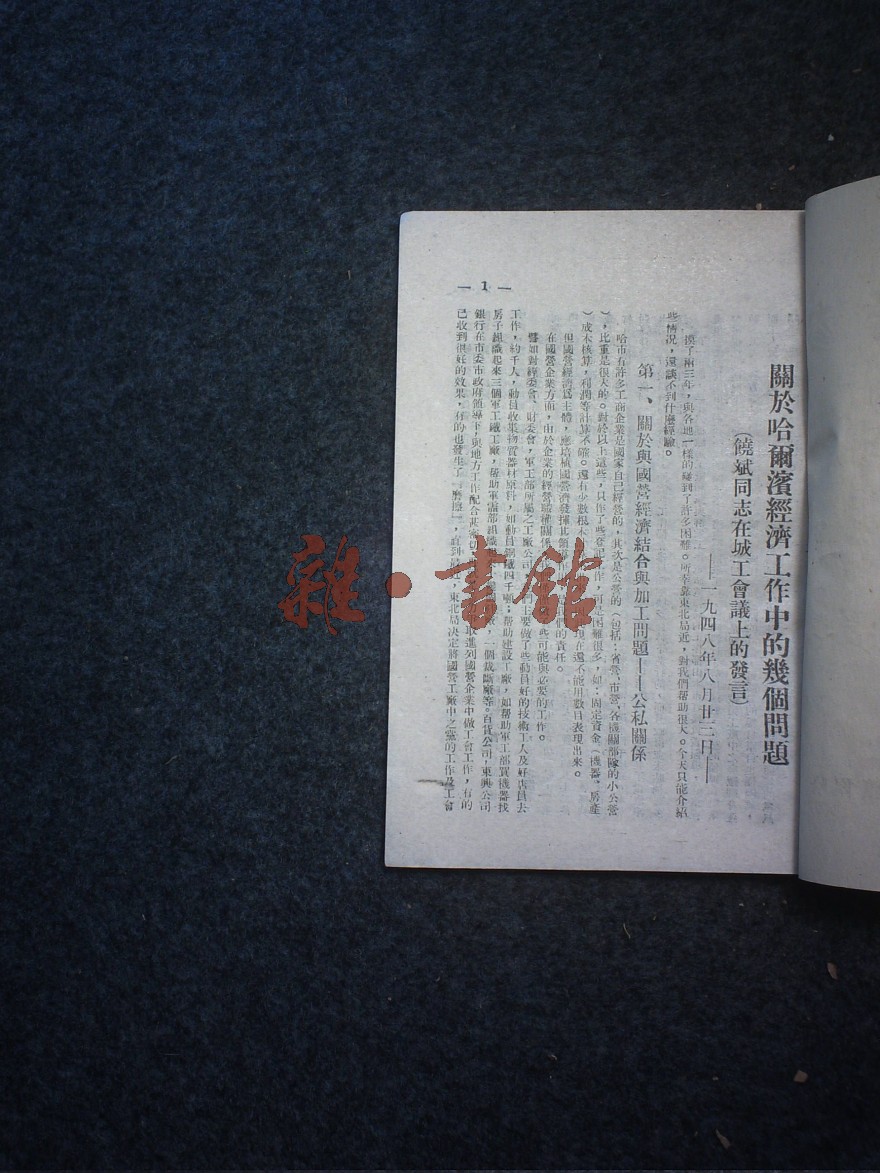 關於哈爾濱經濟工作中的幾個問題
(饒斌同志在城工會議上的發言)
——一九四八年八月廿三日——
摸了兩三年,與各地一樣的碰到了許多困難。所幸靠東北局近,對我們幫助很大。今天只能介紹
些情况,還談不到什麽經驗。
第一、關於與國營經濟結合與加工問題——公私關係
哈市有許多工商企業是國家自己經營的,其次是公營的(包括:省營、市營、各機關部隊的小公營
),比重是很大的。對於以上這些,只作了些登記工作,困難很多,如:固定資金(機器、房產
)或未核算,利潤等計算不確。還有少數根 現在還不能用數目表現出來。
但國營經濟爲主體,應培植國營 濟發揮其領導 們的責任。
在國營企業方面,由於企業的經營職權關係 些可能與必要的工作。
譬如對經委會、財委會,軍工部所屬之工廠公司 主要做了些動員好的技術工人及好店員去
工作,約千人,動員收集物資器材原料,如動員鋼鐵四千噸;帮助建設工廠,如帮助軍工部買機器找
房子組織起來三個軍工鐵工廠,帮助軍需部組織 廠,一個裁斷廠等。百貨公司,東興公司
銀行在市委市政府領導下與地方工作配合甚密切, 取進到國營企業中做工會工作,有的
已收到很好的效果,有的也發生了「磨擦」,直到最近,東北局决定將國營工廠中之黨的工作及工會
— 1 —
雜·書館